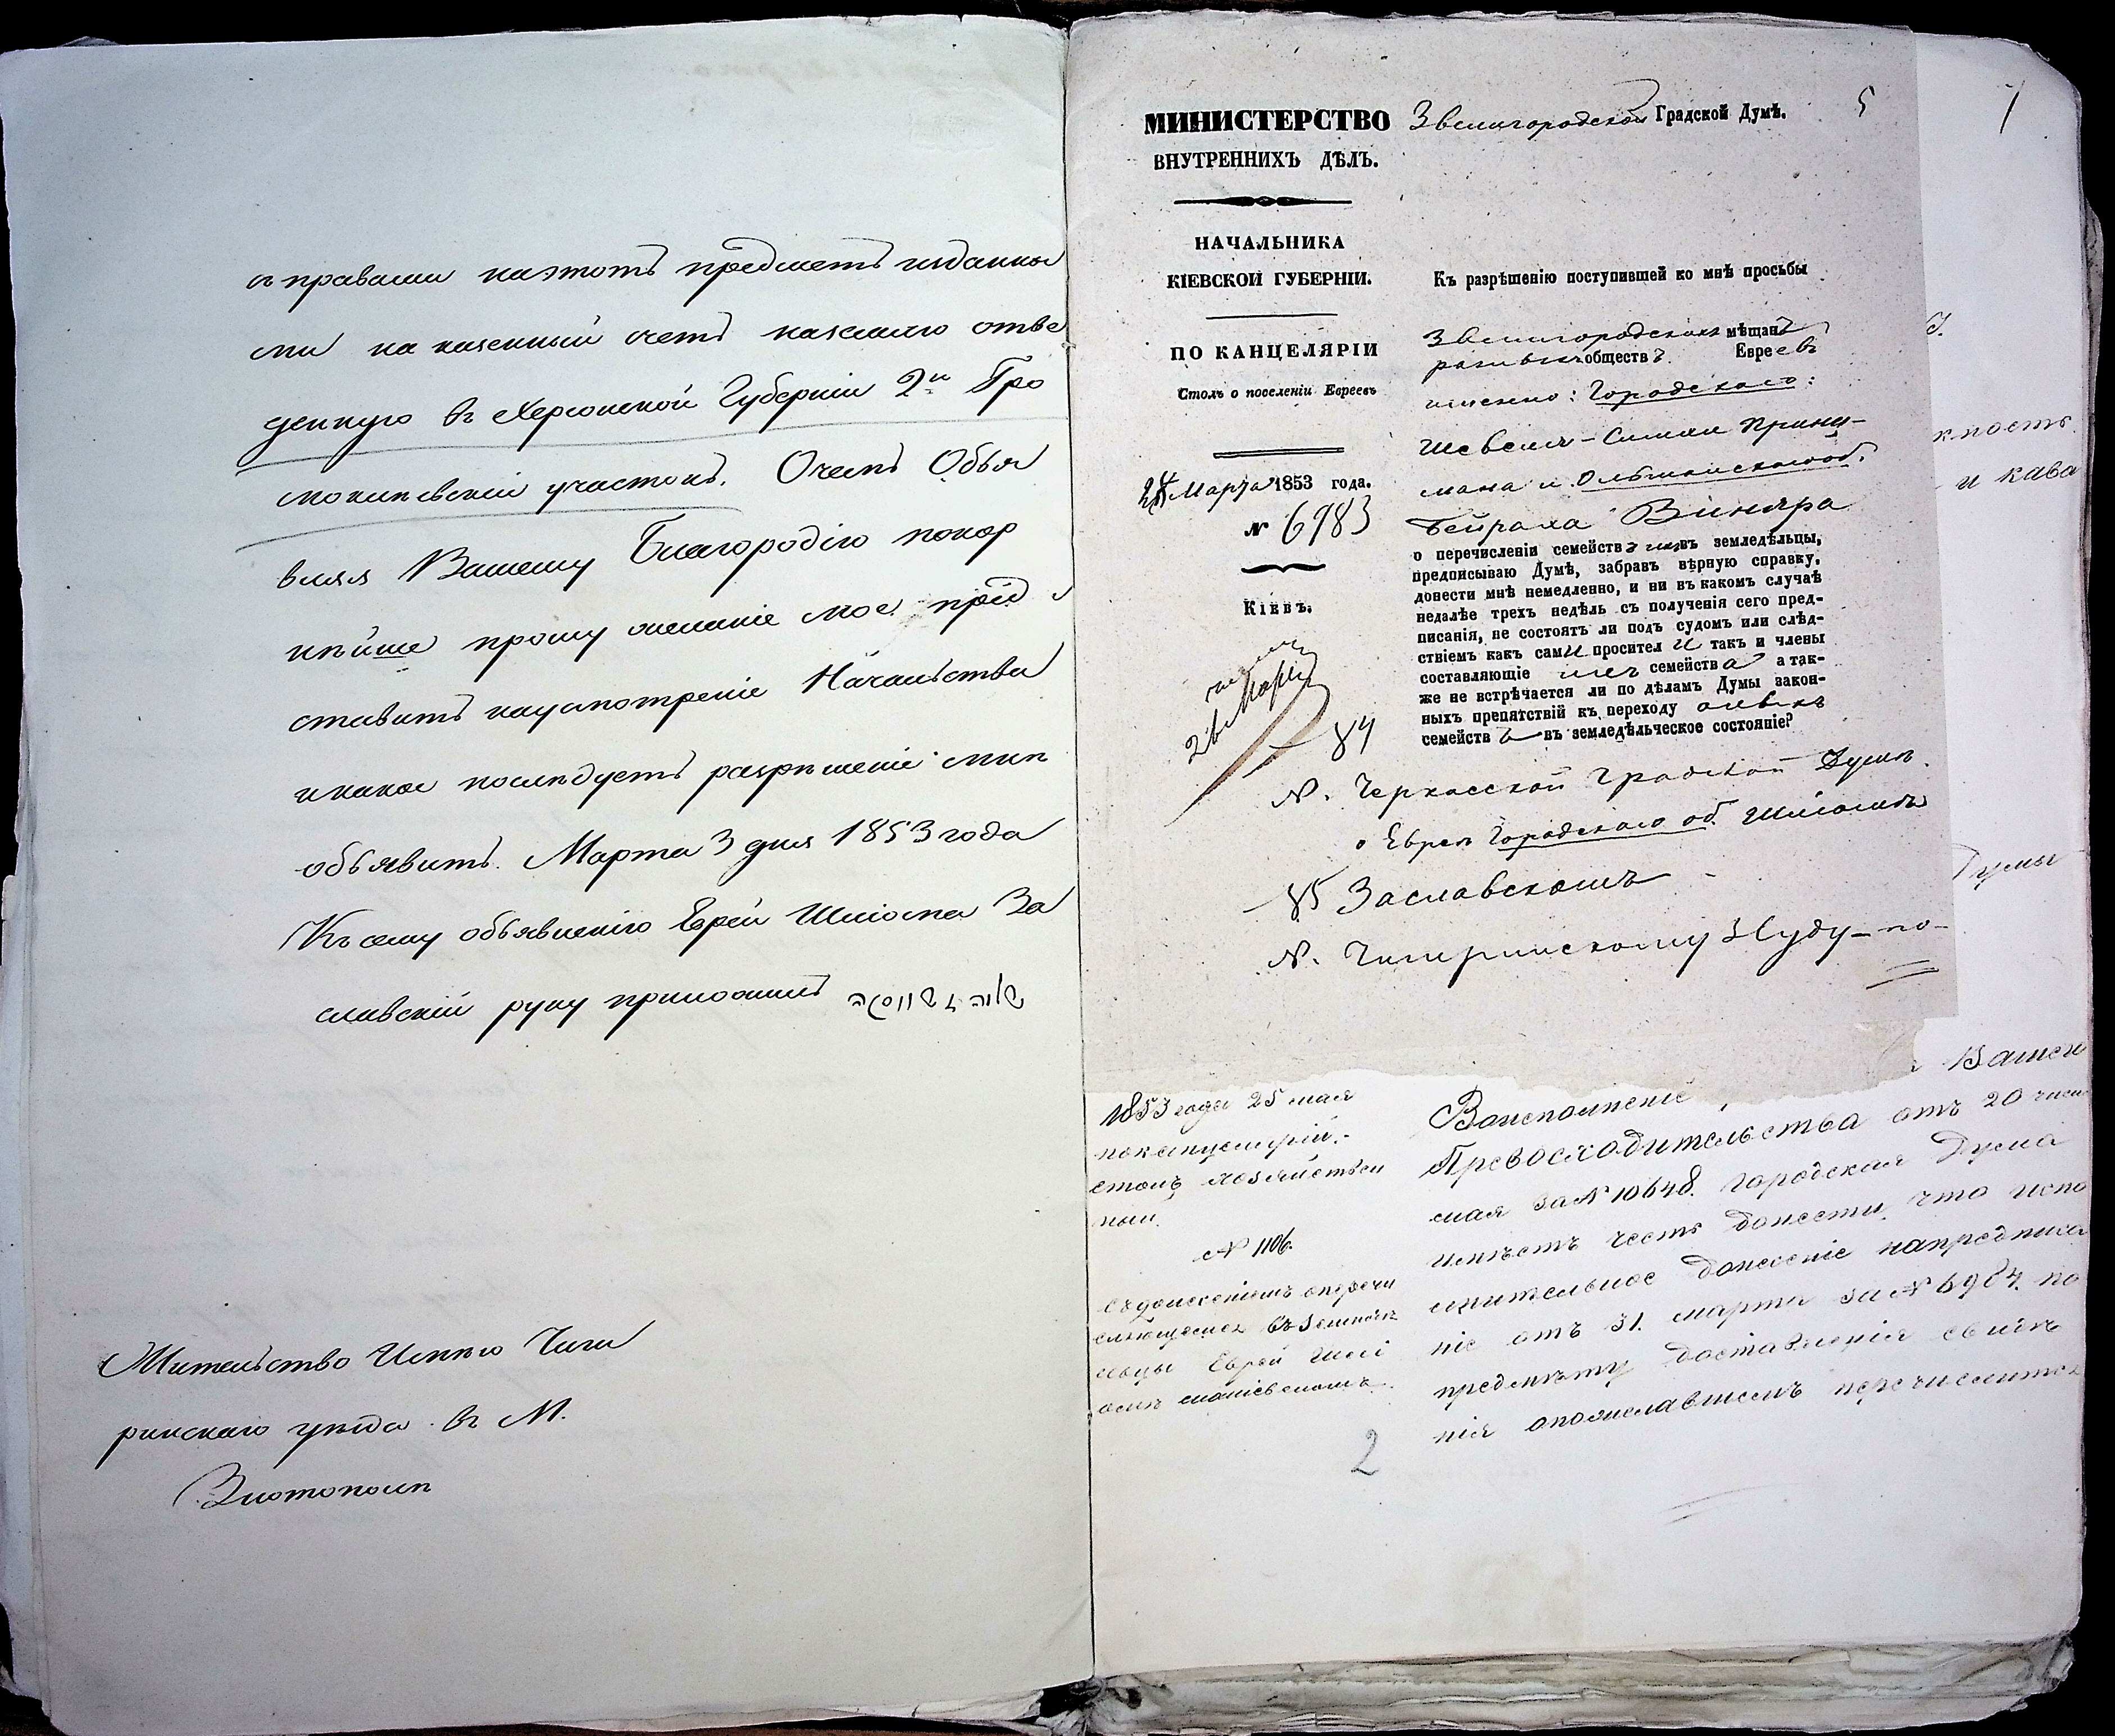 с правами наэтотъ предметъ изданны
ми на казенный счетъ наземлю отве
денную въ Херсонской Губерніи 2й Гро
моклѣевскій участокъ. Очемъ Объя
вляя Вашему Благородію покор
нѣйше прошу желаніе мое пред
ставить науcмотреніе Начальства
икакое послѣдуетъ разрѣшеніе мнѣ
объявить. Марта 3 дня 1853 года
Къ сему объявленію Еврей Шліома За
славскій руку приложилъ
Жительство Имѣю Чиги
ринскаго уѣзда въ М.
Златополѣ
5
1
МИНИСТЕРСТВО
ВНУТРЕННИХЪ ДѢЛЪ.
НАЧАЛЬНИКА
КІЕВСКОЙ ГУБЕРНІИ.
ПО КАНЦЕЛЯРІИ
Столъ о поселеніи Евреевъ
Марта 1853 года.
№ 6983
КІЕВЪ.
84
Звенигородской Градской Думѣ.
Къ разрѣшенію поступившей ко мнѣ просьбы
Звенигородскихъ мѣщанъ
разныхъ обществъ Евреевъ
именно: Городскаго:
Принц-
мана и Ольшанскаго об.
Бейраха Виняра
о перечисленіи семействъ ихъ въ земледѣльцы,
предписываю Думѣ, забравъ вѣрную справку,
донести мнѣ немедленно, и ни въ какомъ случаѣ
недалѣе трехъ недѣль съ полученія сего пред-
писанія, не состоятъ ли подъ судомъ или слѣд-
ствіемъ какъ сами просители такъ и члены
составляющіе ихъ семейства а так-
же не встрѣчается ли по дѣламъ Думы закон-
ныхъ препятствій къ переходу оныхъ
семействъ въ земледѣльческое состояніе?
№. Черкасской градской Думѣ.
о Евреѣ Городскаго об. Шліомѣ
85 Заславскомъ
№. Чигиринскому
кность
и кава
Думы
1853 года 25 мая
поканцеляріи.
столъ хозяйствен
ный.
№ 1106.
съдонесеніемъ оперечи
сляющемся въземледѣ
льцы Еврей Шлі
Воисполненіе Вашего
Превосходительства отъ 20 числа
мая за № 10648. городская Дума
имѣетъ честь донести, что испо
лнительное донесеніе напредписа
ніе отъ 31. марта за № 6984. по
предмѣту доставленія свѣдѣ
нія опожелавшемъ перечислится
2